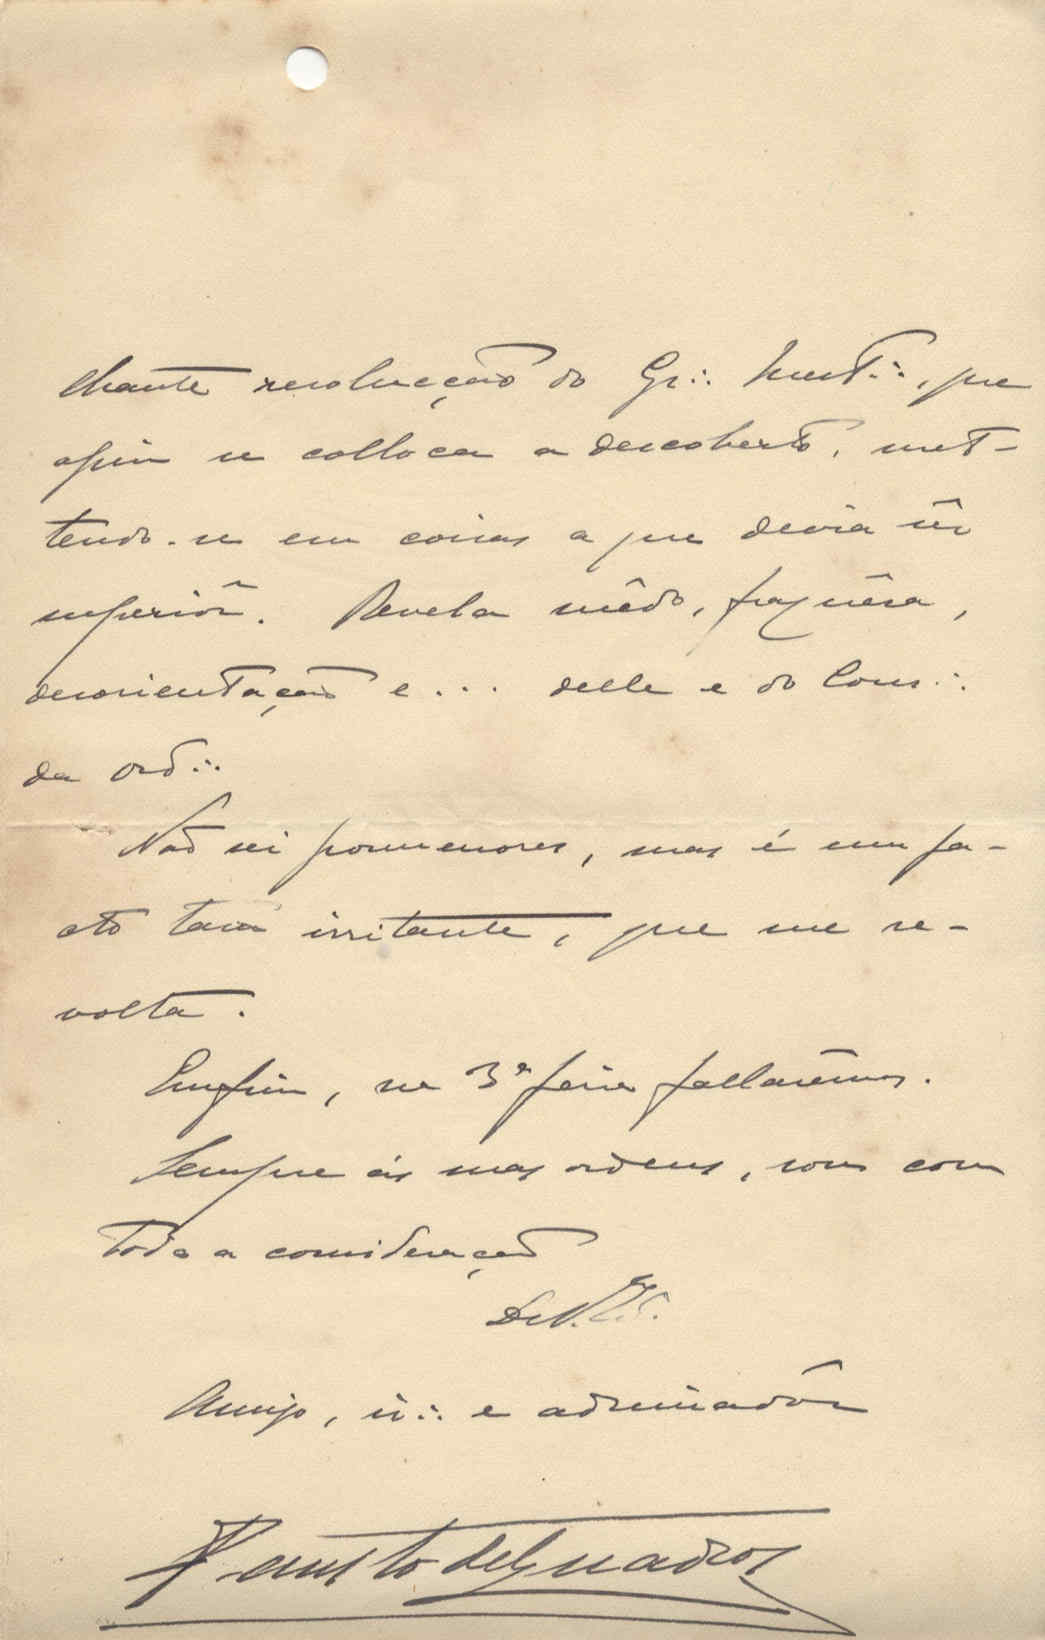 chante resolucção do Gr∴ Mest∴, que
assim se colloca a descoberto, met-
tendo-se em coisas a que devia sêr
superiôr. Revela mêdo, fraquêsa,
desorientação e... delle e do Cons∴
da Ord∴
Não sei pormenores, mas é um fa-
cto tam irritante, que me re-
volta.
Emfim, na 3ª feira fallarêmos.
Sempre ás suas ordens, sou com
toda a consideração
De V.
Amigo, ir∴ e admiradôr
Fausto de Quadros